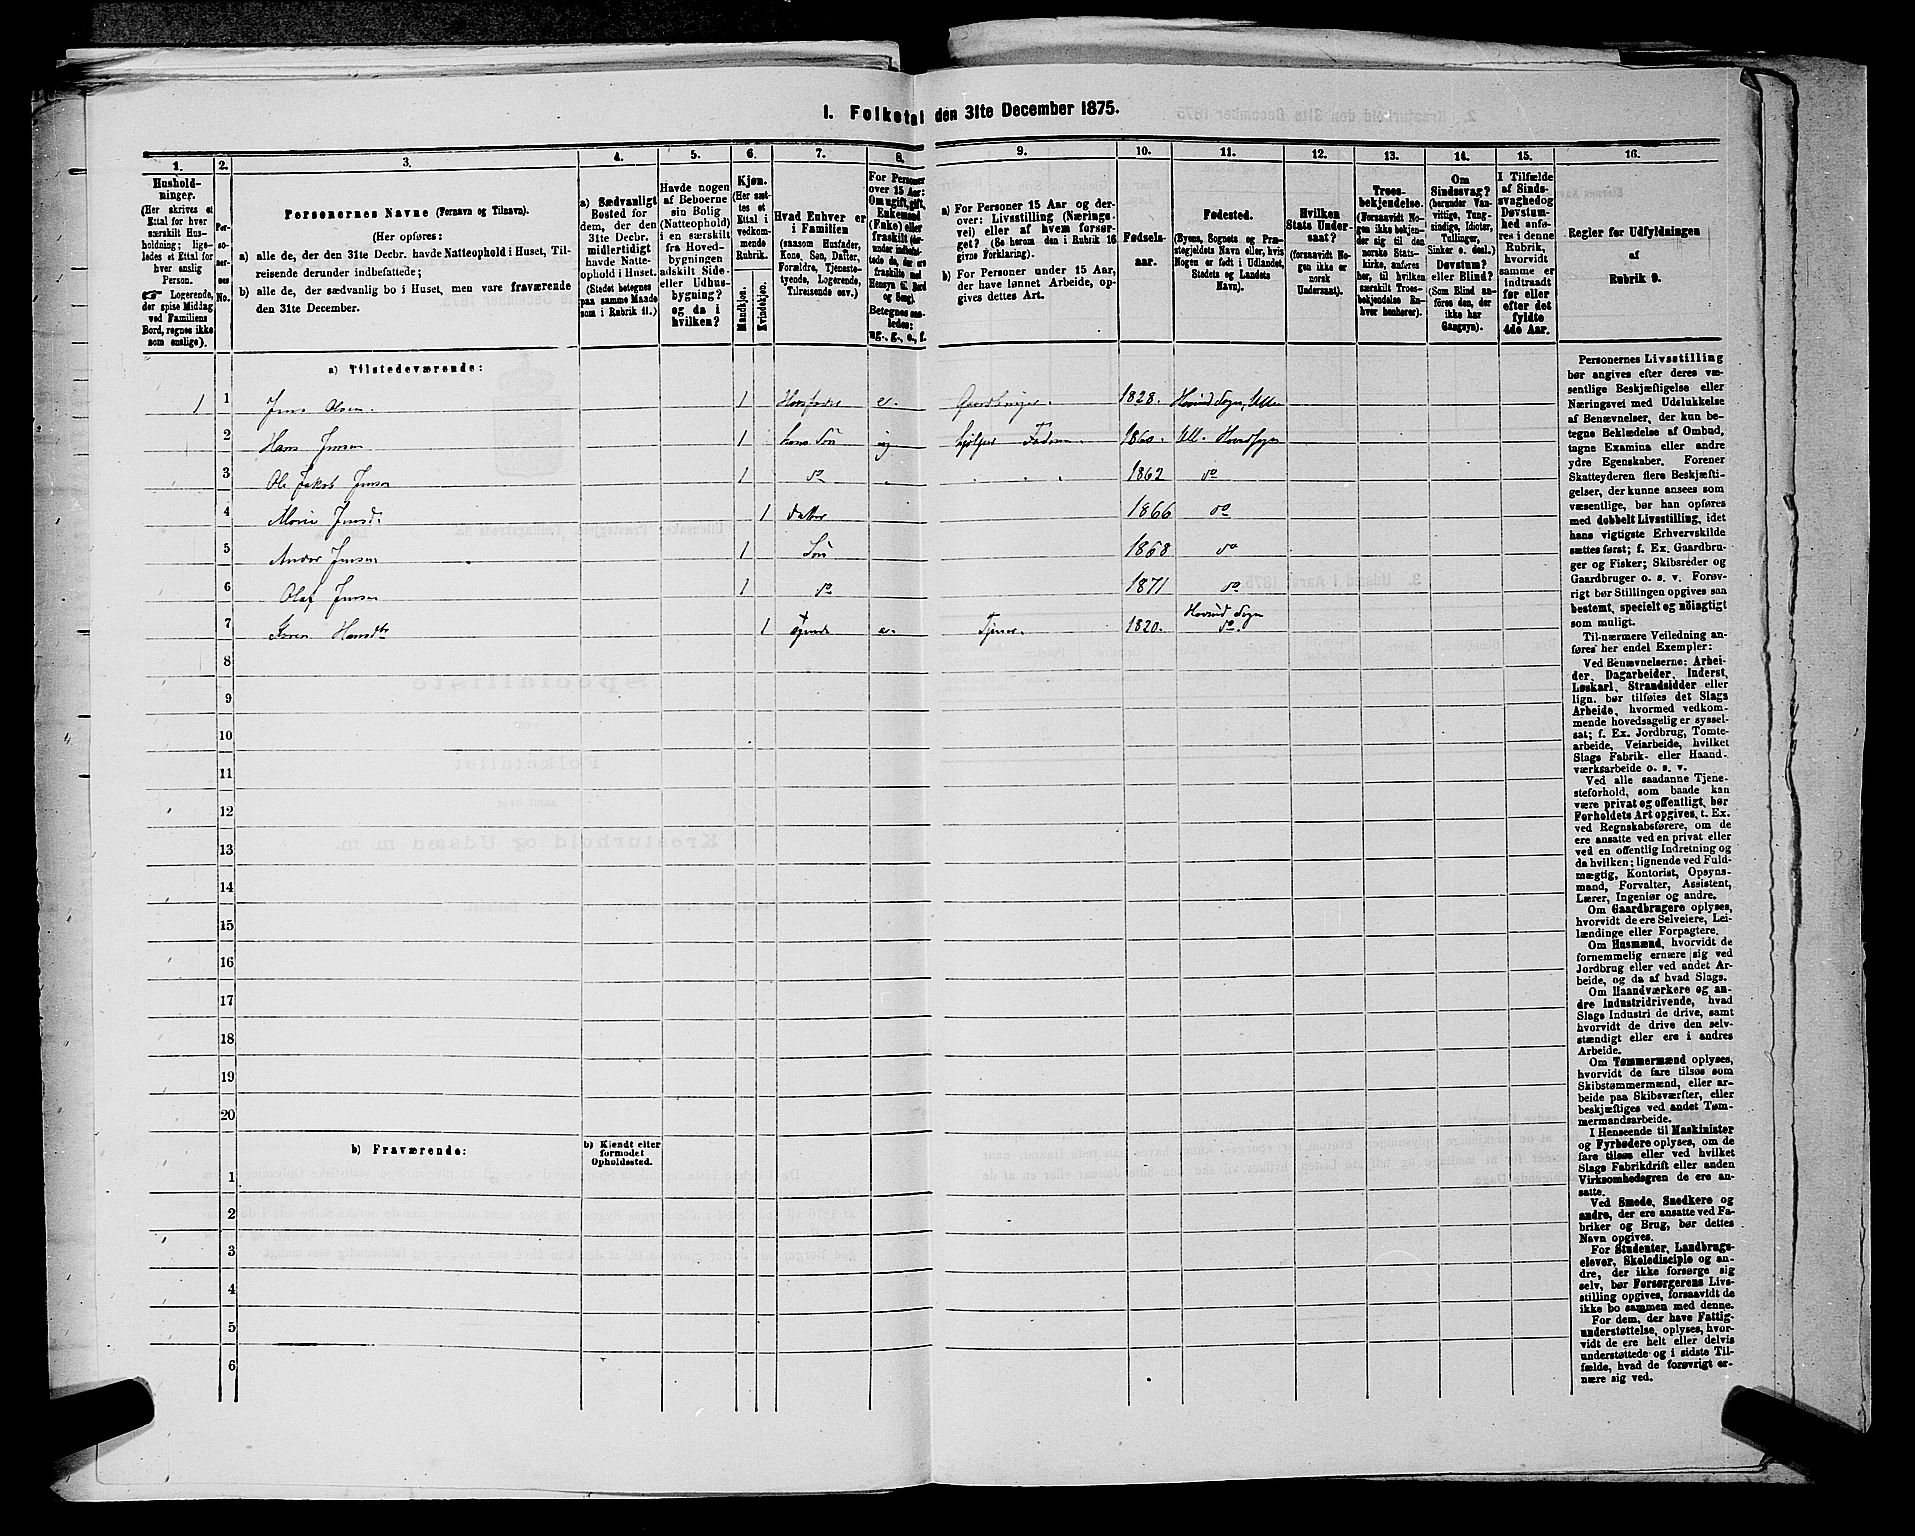 1. Folketal den 31te December 1875.
1. 2. 3. 4. 5. 6. 7. 8. 9. 10. 11. 12. 13. 14. 15. 16.
Hushold-
ninger.
(Her skrives et
Ettal for hver
særskilt Hus-
holdning; lige-
ledes et Ettal for
hver enslig
Person.
☞ Logerende,
der spise Middag
ved Familiens
Bord, regnes ikke
som enslige).
Per-
so-
ner-
nes
No.
Personernes Navne (Fornavn og Tilnavn).
(Her opføres:
a) alle de, der den 31te Decbr. havde Natteophold i Huset, Til-
reisende derunder indbefattede;
b) alle de, der sædvanlig bo i Huset, men vare fraværende
den 31te December.
a) Sædvanligt
Bosted for
dem, der den
31te Decbr.
midlertidigt
havde Natte-
ophold i Huset.
(Stedet betegnes
paa samme Maade
som i Rubrik 11.)
Havde nogen
af Beboerne
sin Bolig
(Natteophold)
i en særskilt
fra Hoved-
bygningen
adskilt Side-
eller Udhus-
bygning?
og da i
hvilken?
Kjøn.
(Her sæt-
tes et
Ettal i
vedkom-
mende
Rubrik.
Mandkjøn.
Kvindekjøn.
Hvad Enhver er
i Familien
(saasom Husfader,
Kone, Søn, Datter,
Forældre, Tjeneste-
tyende, Logerende,
Tilreisende osv.)
For Personer
over 15 Aar:
Om ugift, gift,
Enkemand
(Enke) eller
fraskilt (der-
under indbefat-
tede de, der ere
fraskilte med
Hensyn til Bord
og Seng).
Betegnes saa-
ledes:
ug., g., e., f.
a) For Personer 15 Aar og der-
over: Livsstilling (Nærings-
vei) eller af hvem forsør-
get? (Se herom den i Rubrik 16
givne Forklaring).
b) For Personer under 15 Aar,
der have lønnet Arbeide, op-
gives dettes Art.
Fødsels-
aar.
Fødested.
(Byens, Sognets og Præ-
stegjeldets Navn eller, hvis
Nogen er født i Udlandet,
Stedets og Landets
Navn).
Hvilken
Stats Under-
saat?
(forsaavidt No-
gen ikke er
norsk
Undersaat).
Troes-
bekjendelse.
(Forsaavidt No-
gen ikke bekjen-
der sig til den
norske Stats-
kirke, anføres
her, til hvilken
særskilt Troes-
bekjendelse En-
hver henhører).
Om
Sindssvag?
(herunder Van-
vittige, Tung-
sindige, Idioter,
Tullinger,
Sinker o. desl.).
Døvstum?
eller Blind?
(Som Blind an-
føres den, der
ikke har
Gangsyn).
I Tilfælde
af Sinds-
svaghed og
Døvstum-
hed anfø-
res i denne
Rubrik,
hvorvidt
samme er
indtraadt
før eller
efter det
fyldte
4de Aar.
Regler for Udfyldningen
af
Rubrik 9.
a) Tilstedeværende:
1 1 Jens Olsen. 1 Husfader e. Gaardbruger. 1828. Hovind Sogn, Ullen
2 Hans Jensen 1 hans Søn ug hjelper Faderen. 1860. Ull. Hovind Sogn
3 Ole Jakob Jensen 1 do 1862 do
4 Marie Jensd. 1 Datter 1866 do
5 Andor Jensen 1 Søn 1868 do
6 Olaf Jensen 1 do 1871 do
7 Karen Hansdtr 1 e. Tjener. 1820. Hovind Sogn do.
8
9
10
11
12
13
14
15
16
17
18
19
20
b) Fraværende:
b) Kjendt eller
formodet
Opholdssted.
1
2
3
4
5
6
Personernes Livsstilling
bør angives efter deres væ-
sentlige Beskjæftigelse eller
Næringsvei med Udelukkelse
af Benævnelser, der kun be-
tegne Beklædelse af Ombud,
tagne Examina eller andre
ydre Egenskaber. Forener
Skatteyderen flere Beskjæfti-
gelser, der kunne ansees som
væsentlige, bør han opføres
med dobbelt Livsstilling, idet
hans vigtigste Erhvervskilde
sættes først; f. Ex. Gaardbru-
ger og Fisker; Skibsreder og
Gaardbruger o. s. v. Forøv-
rigt bør Stillingen opgives saa
bestemt, specielt og nöiagtigt
som muligt.
Til nærmere Veiledning an-
føres her endel Exempler:
Ved Benævnelserne: Arbei-
der, Dagarbeider, Inderst,
Løskarl, Strandsidder eller
lign. bør tilføies det Slags
Arbeide, hvormed vedkom-
mende hovedsagelig er syssel-
sat; f. Ex. Jordbrug, Tomte-
arbeide, Veiarbeide, hvilket
Slags Fabrik- eller Haand-
værksarbeide o. s. v.
Ved alle saadanne Tjene-
steforhold, som baade kan
være privat og offentligt, bør
Forholdets Art opgives, f. Ex.
ved Regnskabsførere, om de
ere ansatte ved en privat eller
ved en offentlig Indretning og
da hvilken; lignende ved Fuld-
mægtig, Kontorist, Opsyns-
mand, Forvalter, Assistent,
Lærer, Ingeniør og andre.
Om Gaardbrugere oplyses,
hvorvidt de ere Selveiere, Lei-
lændinge eller Forpagtere.
Om Husmænd, hvorvidt de
fornemmelig ernære sig ved
Jordbrug eller ved andet Ar-
beide, og da af hvad Slags.
Om Haandværkere og an-
dre Industridrivende, hvad
Slags Industri de drive, samt
hvorvidt de drive den selv-
stændigt eller ere i andres
Arbeide.
Om Tømmermænd oplyses,
hvorvidt de fare tilsøs som
Skibstømmermænd, eller ar-
beide paa Skibsværfter, eller
beskjæftiges ved andet Tøm-
mermandsarbeide.
I Henseende til Maskinister
og Fyrbødere oplyses, om de
fare tilsøs eller ved hvilket
Slags Fabrikdrift eller anden
Virksomhedsgren de ere an-
satte.
Ved Smede, Snedkere og
andre, der ere ansatte ved Fa-
briker og Brug, bør dettes
Navn opgives.
For Studenter, Landbrugs-
elever, Skoledisciple og an-
dre, der ikke forsørge sig
selv, bør Forsørgerens Livs-
stilling opgives, forsaavidt de
ikke bo sammen med denne.
For dem, der have Fattig-
understøttelse, oplyses, hvor-
vidt de ere helt eller delvis
understøttede og i sidste Til-
fælde, hvad de forøvrigt er-
nære sig ved.